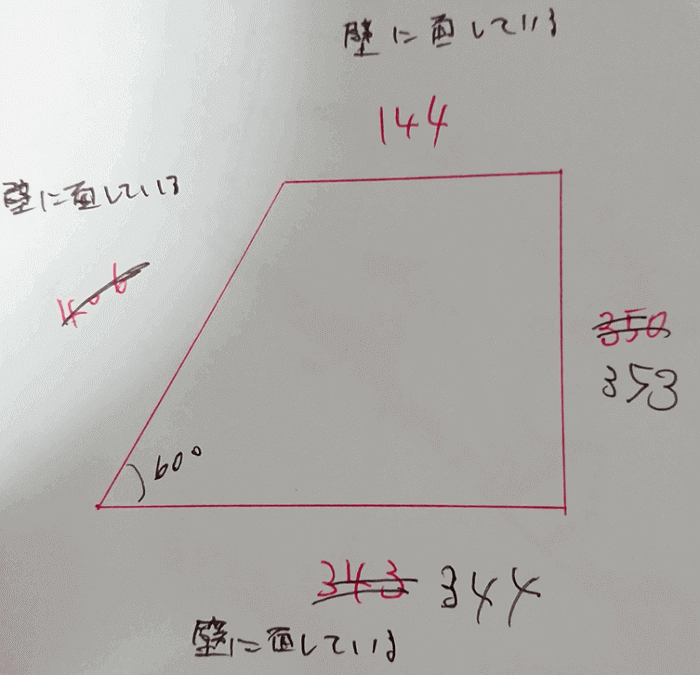 壁に面している
144
壁に面している
406
350
353
60°
343 344
壁に面している